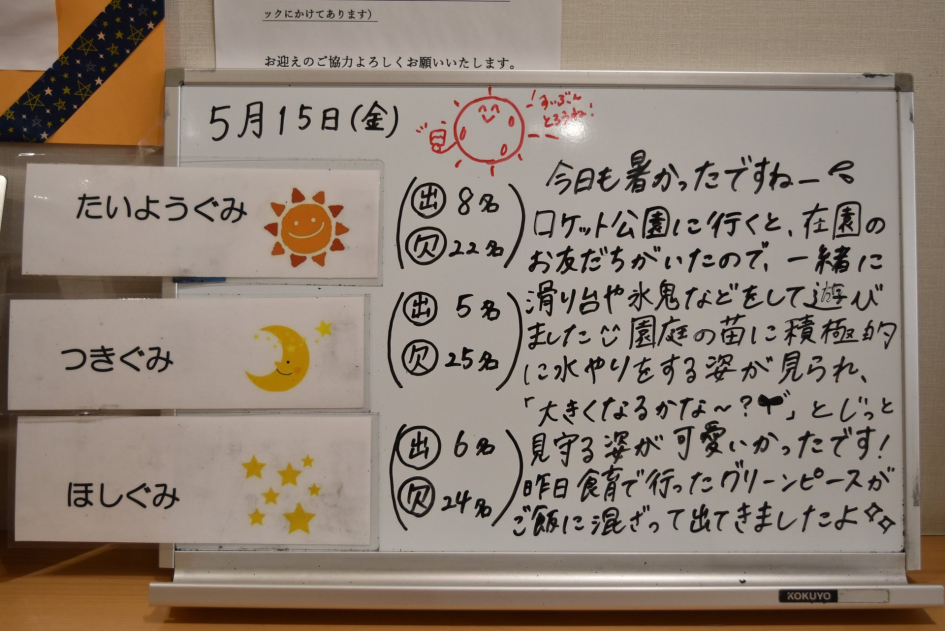 ックにかけてあります）
お迎えのご協力よろしくお願いいたします。
5月15日(金)
すいぶん
とろうね!
たいようぐみ
出 8名
欠 22名
つきぐみ
出 5名
欠 25名
ほしぐみ
出 6名
欠 24名
今日も暑かったですねー
ロケット公園に行くと、在園の
お友だちがいたので、一緒に
滑り台や氷鬼などをして遊び
ました 園庭の苗に積極的
に水やりをする姿が見られ、
「大きくなるかな〜?」とじっと
見守る姿が可愛いかったです!
昨日食育で行ったグリーンピースが
ご飯に混ざって出てきましたよ
KOKUYO